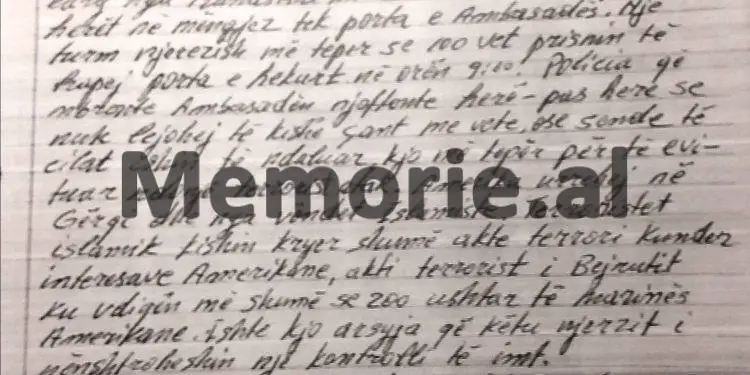 herët në mëngjez tek porta e Ambasadës. Një
turm njerëzish më tepër se 100 vet prisnin të
hapej porta e hekurt në orën 9:00! Policia që
mbronte Ambasadën njoftonte herë-pas here se
nuk lejohej të kishe çant me vete, ose sende të
cilat ishin të ndaluar, kjo më tepër për të evi-
tuar terrorist atak. Amerika urrehej në
Gërqi dhe nga vendet Islamiste. Terroristet
islamik kishin kryer shumë akte terrori kunder
interesave Amerikane, akti terrorist i Bejrutit
ku vdiqën më shumë se 200 ushtar të Marinës
Amerikane. Ishte kjo arsyja që këtu njerzit i
nënshtroheshin një kontrolli të imt.
Memorie.al